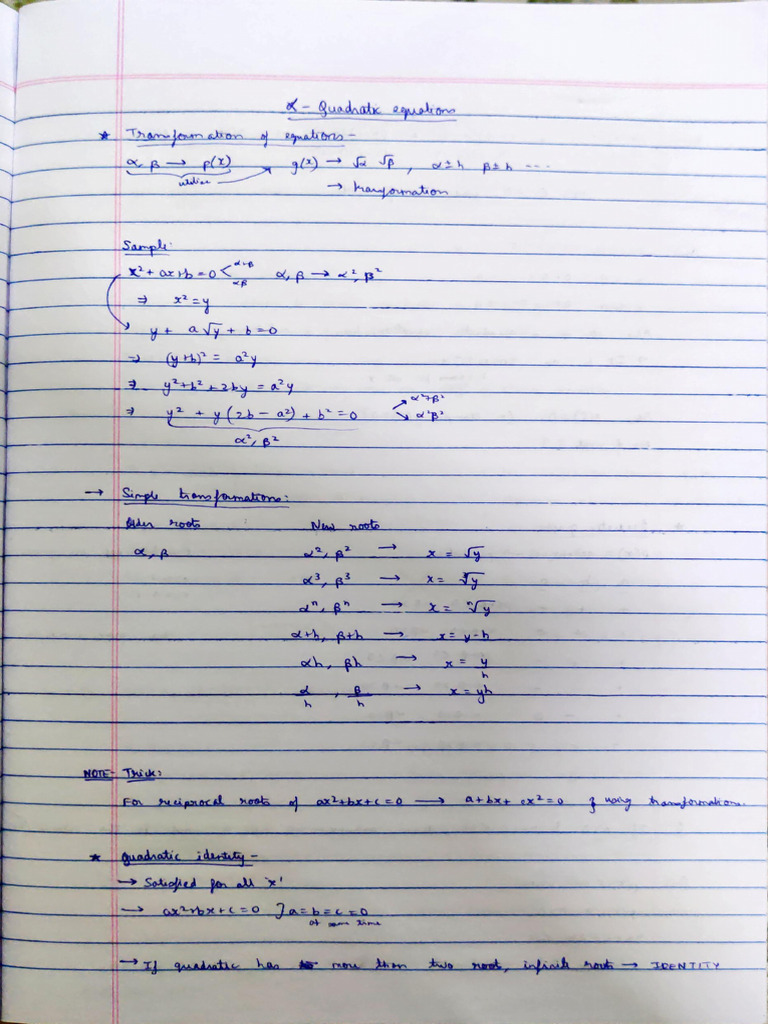 α - Quadratic equations
* Transformation of equations -
α, β → p(x) g(x) → √α √β , α±h β±h ....
utilise → transformation
Sample:
x² + ax+b = 0 < α+β αβ α, β → α², β²
⇒ x² = y
y + a√y + b = 0
⇒ (y+b)² = a²y
⇒ y²+b²+2by = a²y
⇒ y² + y(2b − a²) + b² = 0 α²+β² α²β²
α², β²
→ Simple transformations:
Older roots New roots
α, β α², β² → x = √y
α³, β³ → x = ∛y
αⁿ, βⁿ → x = ⁿ√y
α+h, β+h → x = y−h
αh, βh → x = y/h
α/h , β/h → x = yh
NOTE- Trick:
For reciprocal roots of ax²+bx+c=0 → a+bx+cx²=0 } using transformation.
* Quadratic identity -
→ Satisfied for all 'x'
→ ax²+bx+c=0 } a=b=c=0
at same time
→ If quadratic has more than two root, infinite roots → IDENTITY